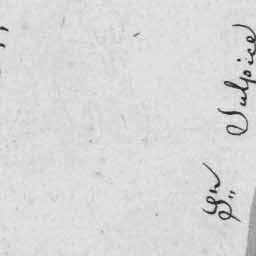 Sn Sulpice